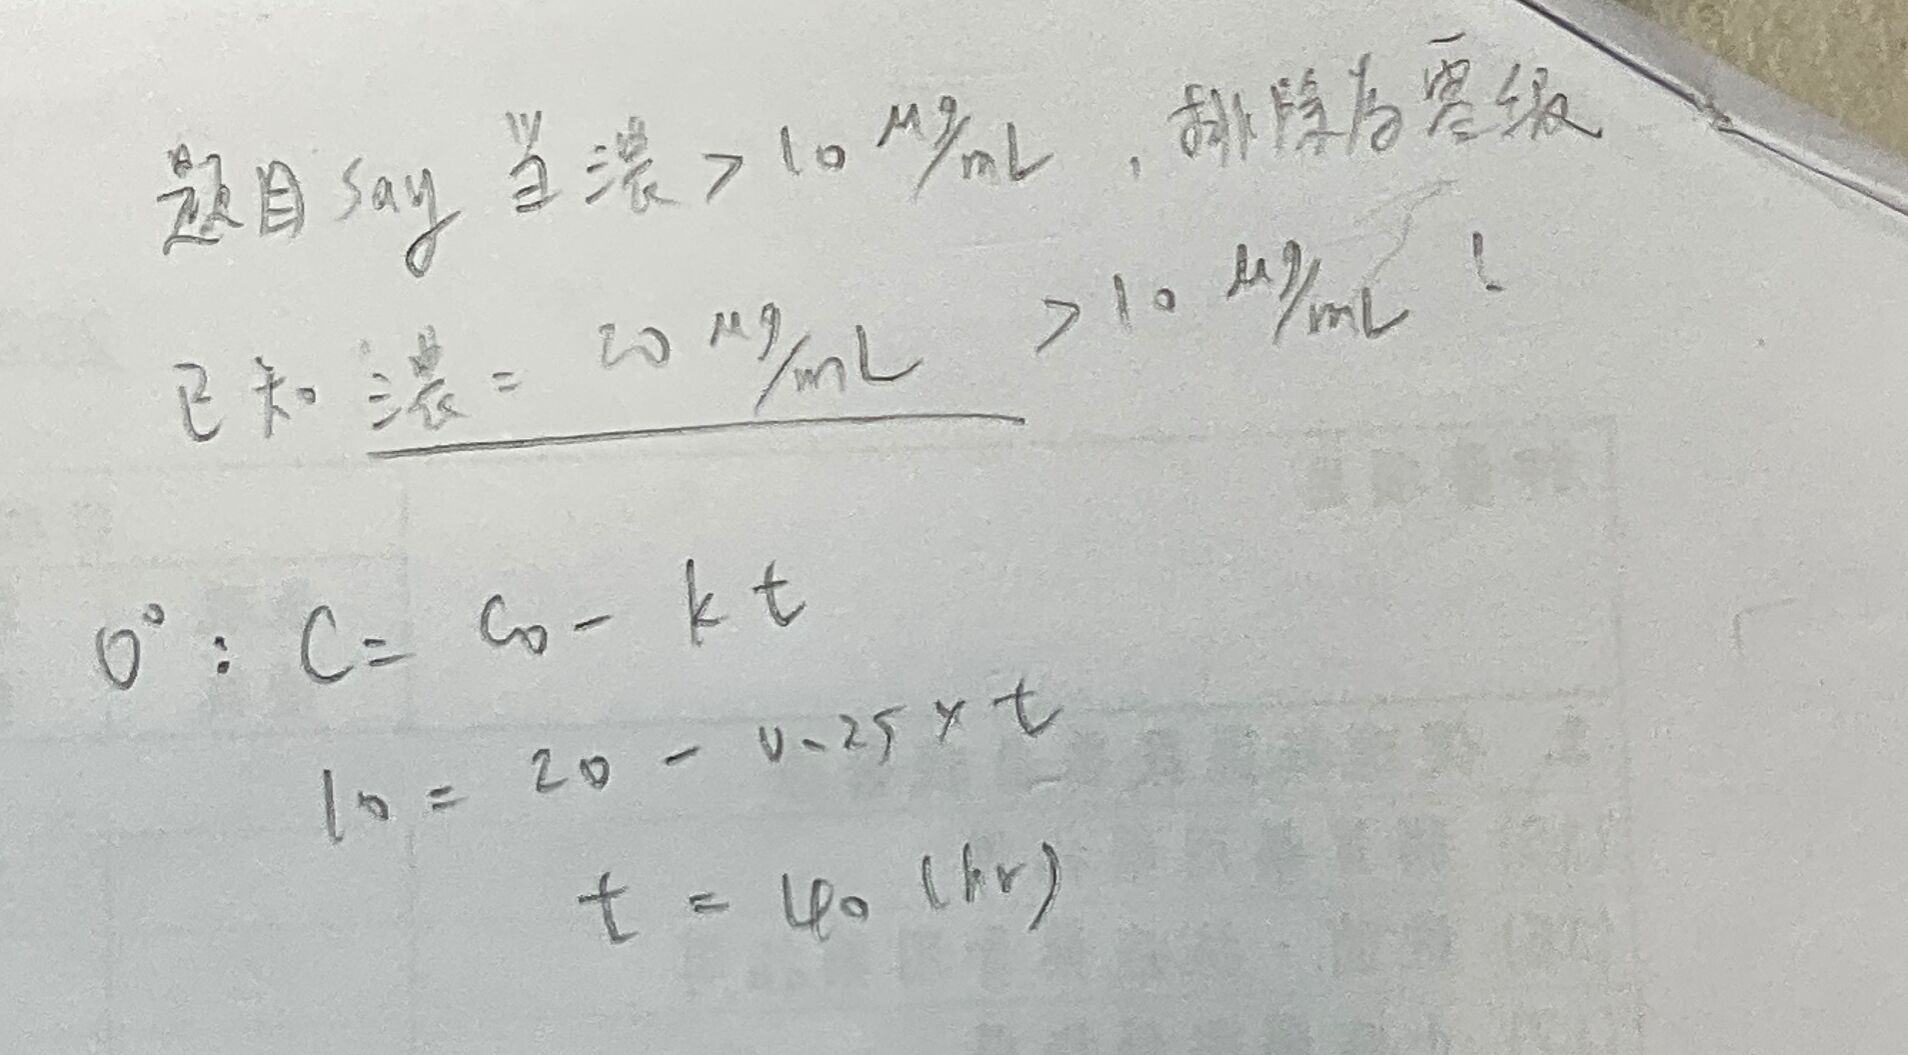 题目 say 当濃 > 10 μg/mL , 排除为零级
已知 濃 = 20 μg/mL > 10 μg/mL !
0° : C = C₀ - k t
10 = 20 - 0.25 × t
t = 40 (hr)